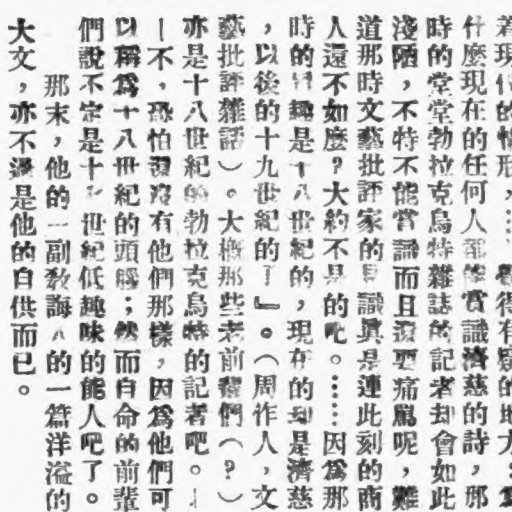 着現代的情形，……看得有疑的地方：為
什麼現在的任何人都能賞識濟慈的詩，那
時的堂堂勃拉克烏特雜誌的記者却會如此
淺陋，不特不能賞識而且還要痛罵呢，難
道那時文藝批評家的見識眞是連此刻的商
人還不如麼？大約不是的吧。……因爲那
時的趣是十八世紀的，現在的却是濟慈
，以後的十九世紀的了』。（周作人，文
藝批評雜話）。大槪那些老前輩們（？）
亦是十八世紀的勃拉克烏特的記者吧。—
—不，恐怕還沒有他們那樣，因爲他們可
以稱爲十八世紀的頭腦；然而自命的前輩
們說不定是十世紀低趣味的能人吧了。
那末，他的一副敎誨人的一篇洋溢的
大文，亦不過是他的自供而已。